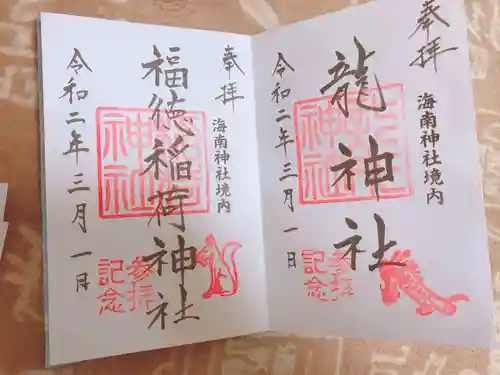 奉拝
海南神社境内
龍神社
龍神社
参拝
記念
令和二年三月一日
奉拝
海南神社境内
福徳稲荷神社
神社
参拝
記念
令和二年三月一日